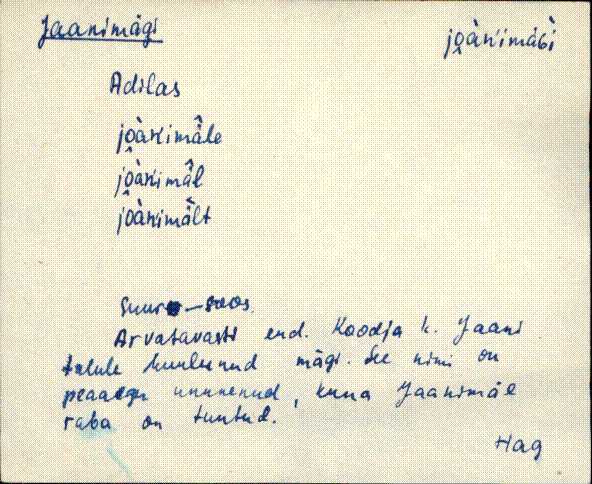 Jaanimägi joàńimäGì
Adilas
joàńimäle
joàńimäl
joàńimält
Suur-soos.
Arvatavasti end. Koodja k. Jaani
talule kuulunud mägi. See nimi on
peaaegu ununenud, kuna Jaanimäe
raba on tuntud.
Hag